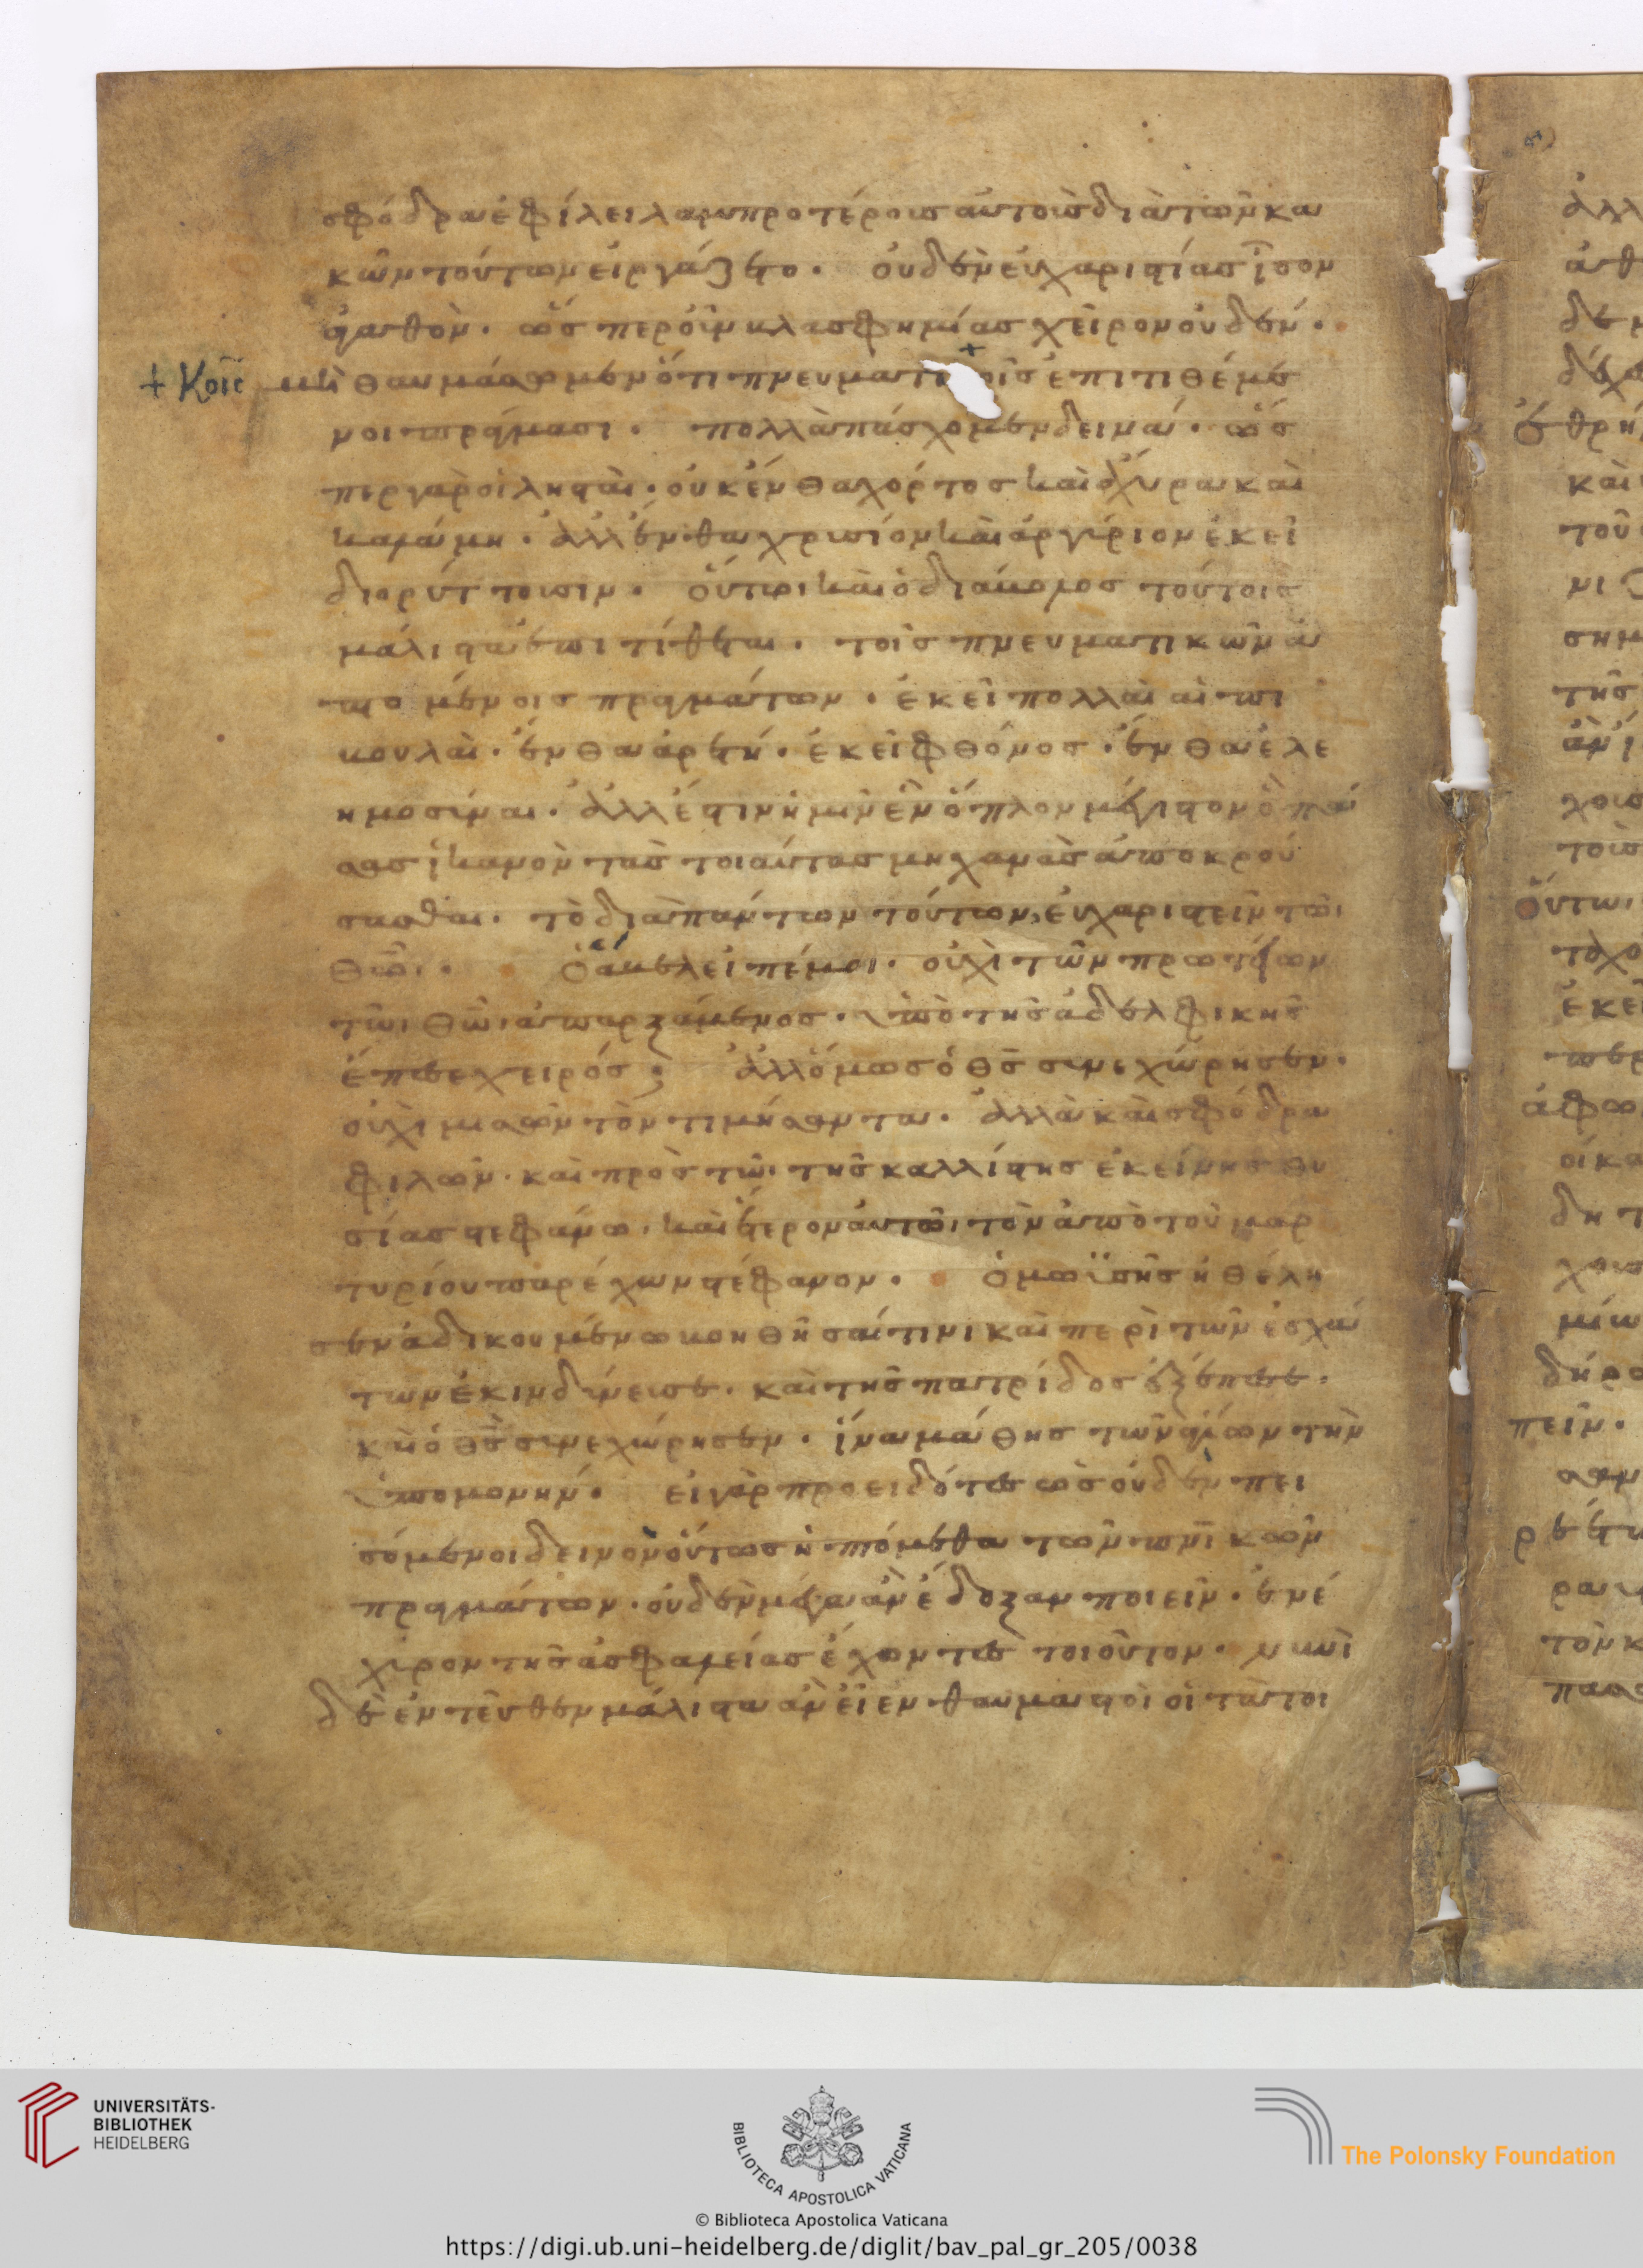 σφόδρα ἐφίλει λαμπροτέρους αὐτοὺς διὰ τῶν κα
κῶν τούτων εἰργάζετο. οὐδὲν εὐχαριστίας ἴσον
ἀγαθὸν. ὥσπερ οὖν βλασφημίας χεῖρον οὐδέν.
+ κοῖς μὴ θαυμάσωμεν ὅτι πνευματι + οῖς ἐπιτιθέμε
νοι πράγμασι. πολλὰ πάσχομεν δεινά. ὥσ
περ γὰρ οἱ λησταὶ. οὐκ ἔνθα χόρτος καὶ ἄχυρα καὶ
καλάμη. ἀλλ' ἔνθα χρυσίον καὶ ἀργύριον ἐκεῖ
διορύττουσιν. οὕτω καὶ ὁ διάβολος τούτοις
μάλιστα ἐπιτίθεται. τοῖς πνευματικῶν ἁ
πτομένοις πραγμάτων. ἐκεῖ πολλαὶ αἱ ἐπι
βουλαὶ. ἔνθα ἀρετή. ἐκεῖ φθόνος. ἔνθα ἐλε
ημοσύναι. ἀλλ' ἔστιν ἡμῖν ἓν ὅπλον μέγιστον ὃ πά
σας ἱκανὸν τὰς τοιαύτας μηχανὰς ἀποκρού
σασθαι. τὸ διὰ πάντων τούτων, εὐχαριστεῖν τῶι
Θῶι. Ὁ ἄβελ εἰπέ μοι. οὐχὶ τῶν πρωτείων
τῶι Θῶι ἀπαρξάμενος. ὑπὸ τῆς ἀδελφικῆς
ἔπεσε χειρός; ἀλλ' ὅμως ὁ Θς συνεχώρησεν.
οὐχὶ μισῶν τὸν τιμήσαντα. ἀλλὰ καὶ σφόδρα
φιλῶν. καὶ πρὸς τῶι τῆς καλλίστης ἐκείνης θυ
σίας στεφάνω. καὶ ἕτερον αὐτῶι τὸν ἀπὸ τοῦ μαρ
τυρίου παρέχων στέφανον. Ὁ μωϋσῆς ἠθέλη
σεν ἀδικουμένω βοηθῆσαί τινι καὶ περὶ τῶν ἐσχά
των ἐκινδύνευσε. καὶ τῆς πατρίδος ἐξέπεσε.
κ̀ ὁ Θς συνεχώρησεν. ἵνα μάθης τῶν ἁγίων τὴν
ὑπομονήν. εἰ γὰρ προειδότες ὡς οὐδὲν πει
σόμενοι δεινὸν οὕτως ἡπτόμεθα τῶν πνικῶν
πραγμάτων. οὐδὲν μέγα ἂν ἔδοξαν ποιεῖν. ἐνέ
χυρον τῆς ἀσφαλείας ἔχοντες τοιοῦτον. νυνὶ
δὲ ἐντεῦθεν μάλιστα ἂν εἶεν θαυμαστοὶ οἱ τὰ τοι
UNIVERSITÄTS-
BIBLIOTHEK
HEIDELBERG
BIBLIOTECA APOSTOLICA VATICANA
The Polonsky Foundation
© Biblioteca Apostolica Vaticana
https://digi.ub.uni-heidelberg.de/diglit/bav_pal_gr_205/0038